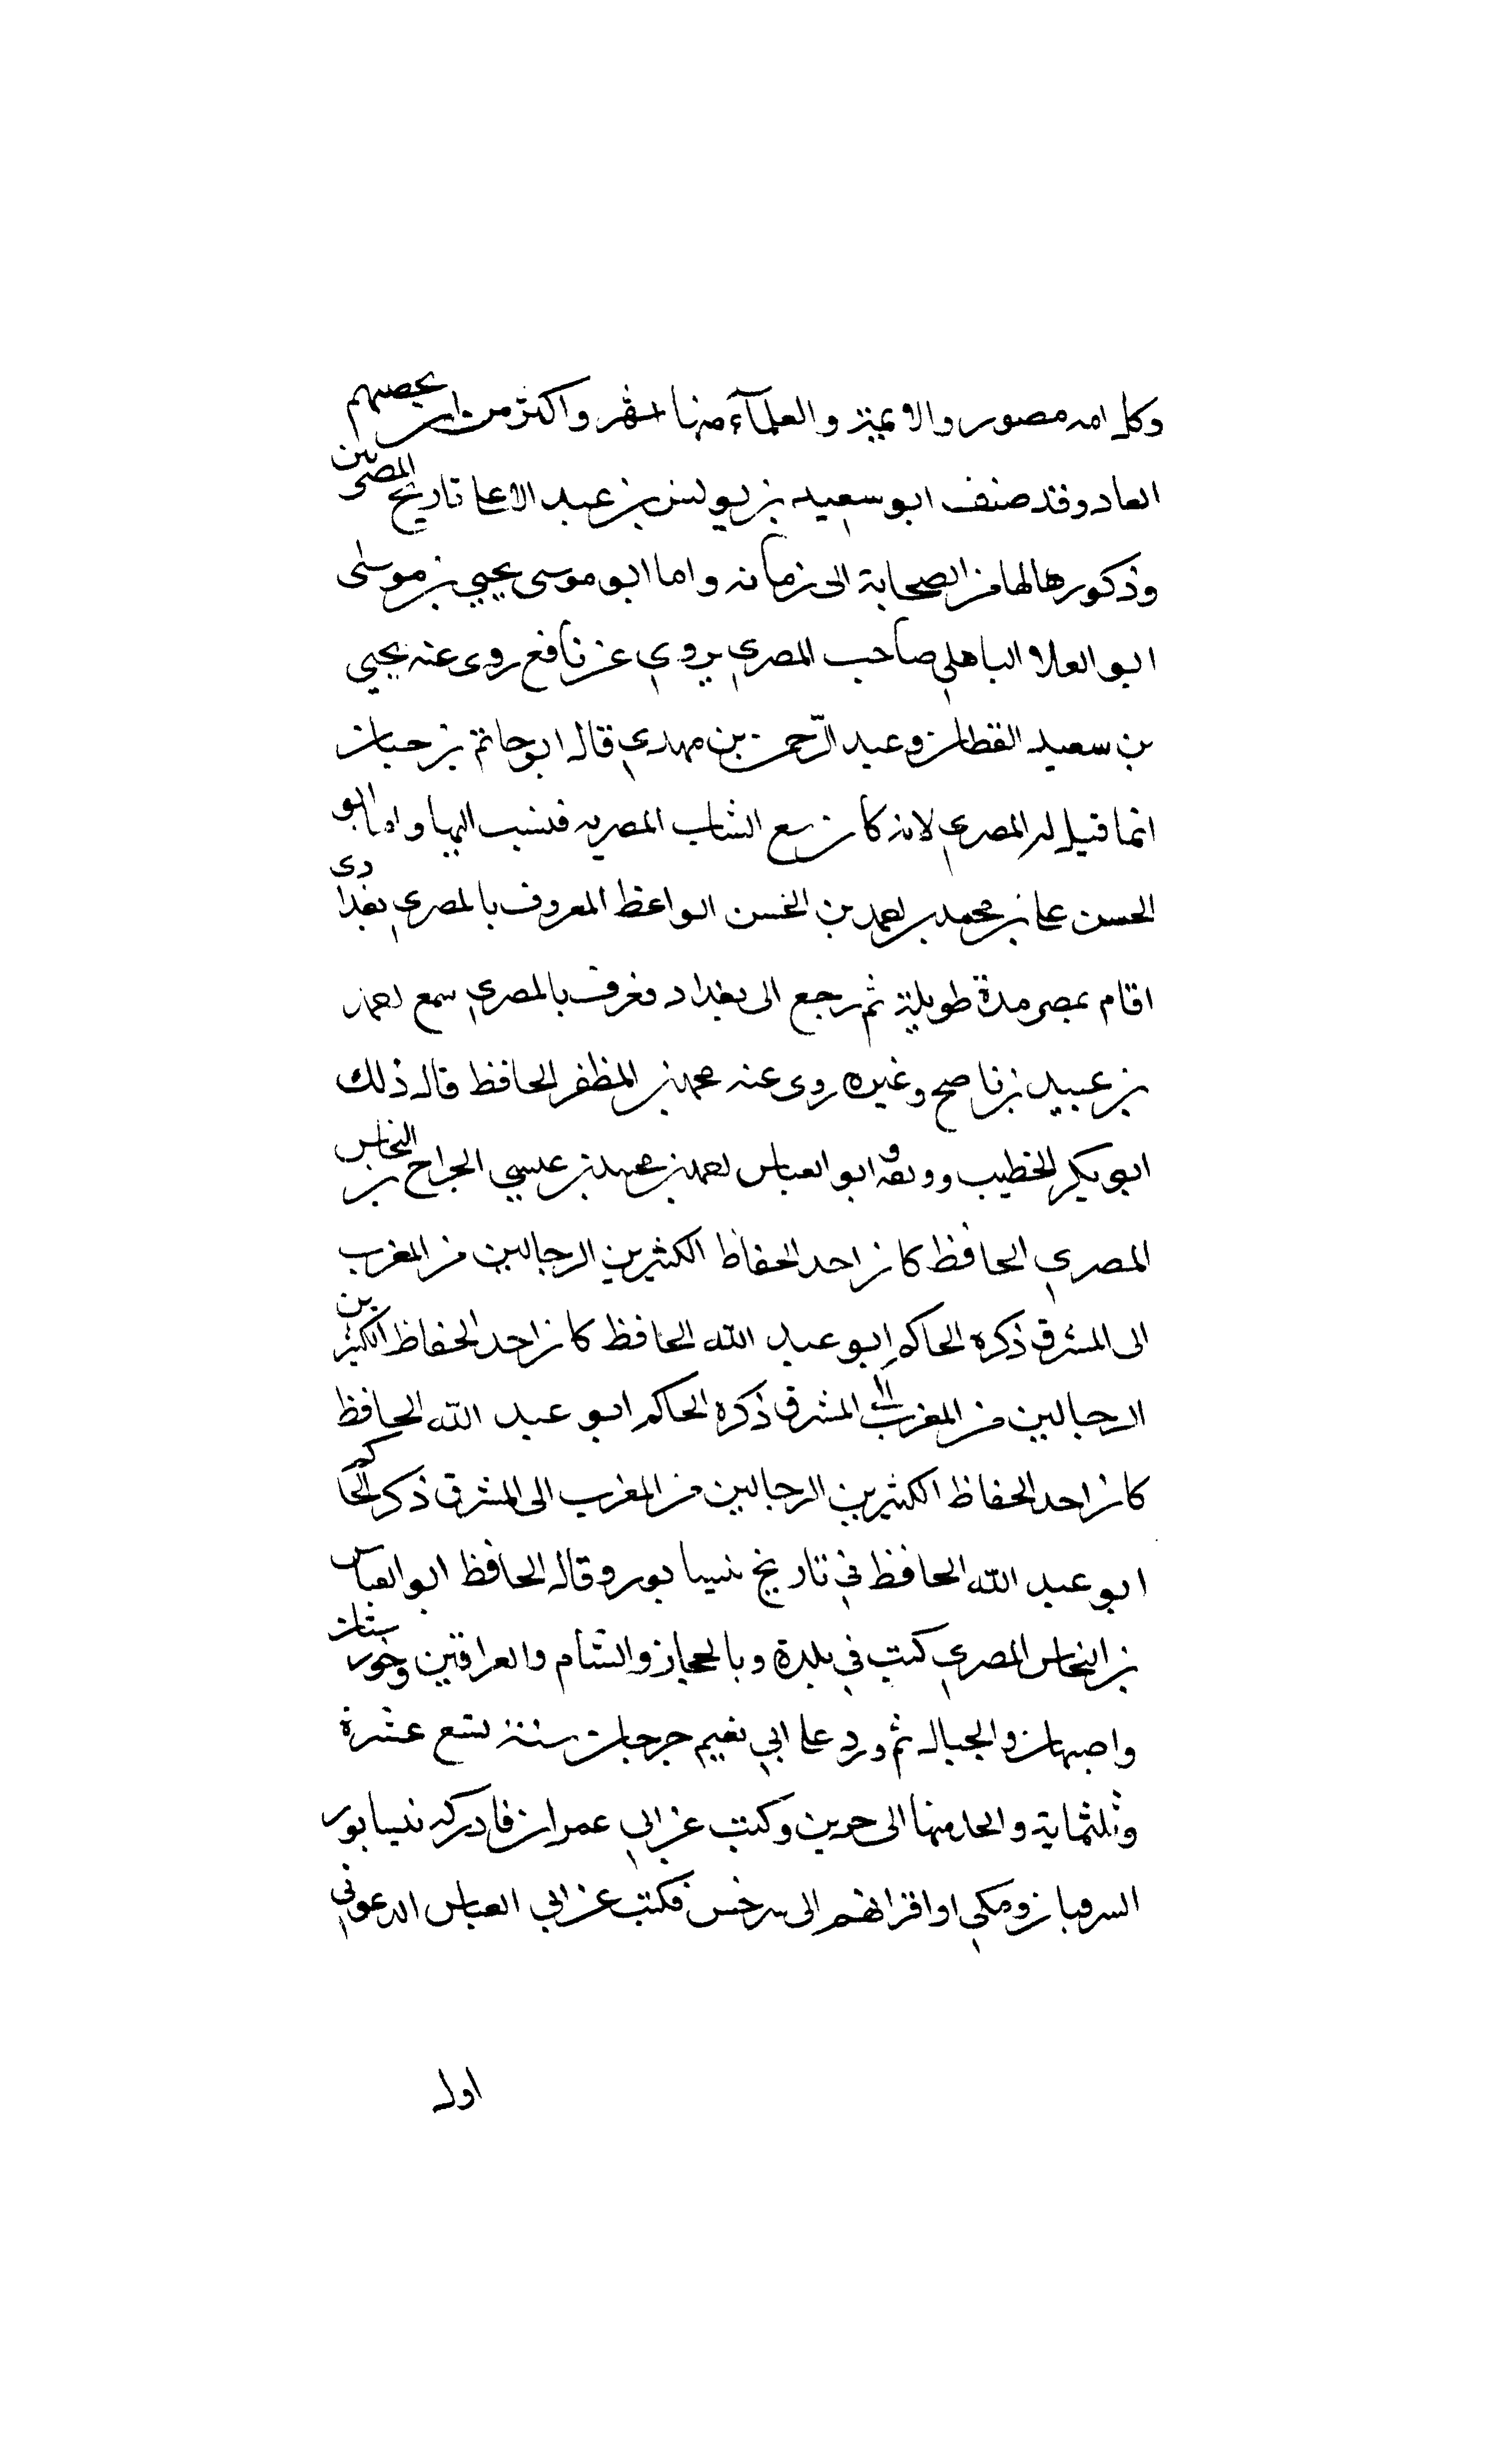 وكل امه مصور والايميز والعلماء منها اشهر واكثر من ان يحصيهم
العاد وقد صنف ابو سعيد بن يونس بن عبد الاعلى تاريخ المصريين
وذكور هالها من الصحابة الى زمانه واما ابو موسى يحيي بن موسى
ابو العلا الباهلي صاحب المصري يروي عن نافع روى عنه يحيي
بن سعيد القطان وعبد الرّحمن بن مهدي قال ابو حاتم بن حبان
انما قيل له المصري لانه كان يبيع الثياب المصريه فنسب اليها واما ابو
الحسن على بن محمد بن احمد بن الحسن الواعظ المعروف بالمصري بغدادي
اقام بمصر مدة طويلة ثم رجع الى بغداد فعرف بالمصري سمع احمد
بن عبيد بن ناصح وغيره روى عنه محمد بن المظفر الحافظ قال ذلك
ابو بكر الخطيب ووثقه وابو العباس احمد بن محمد بن عيسي الجراح بن النحاس
المصري الحافظ كان احد الحفاظ الكثيرين الرحالين من المغرب
الى المشرق ذكره الحاكم ابو عبد الله الحافظ كان احد الحفاظ الكثيرين
الرحالين من المغرب الى المشرق ذكره الحاكم ابو عبد الله الحافظ
كان احد الحفاظ الكثيرين الرحالين من المغرب الى المشرق ذكر الحاكم
ابو عبد الله الحافظ في تاريخ نيسابور وقال الحافظ ابو العباس
بن النحاس المصري كتب في بلدة وبالحجاز والشام والعراقين وخورستان
واصبهان والجبال ثم ورد على ابي نعيم جرجان سنة تسع عشرة
وثلثماية منها الى جرين وكتب عن ابي عمران فادركه نيسابور
ومكي او اقرانهم الى سرخس فكتب عن ابي العباس الدعولي
اول